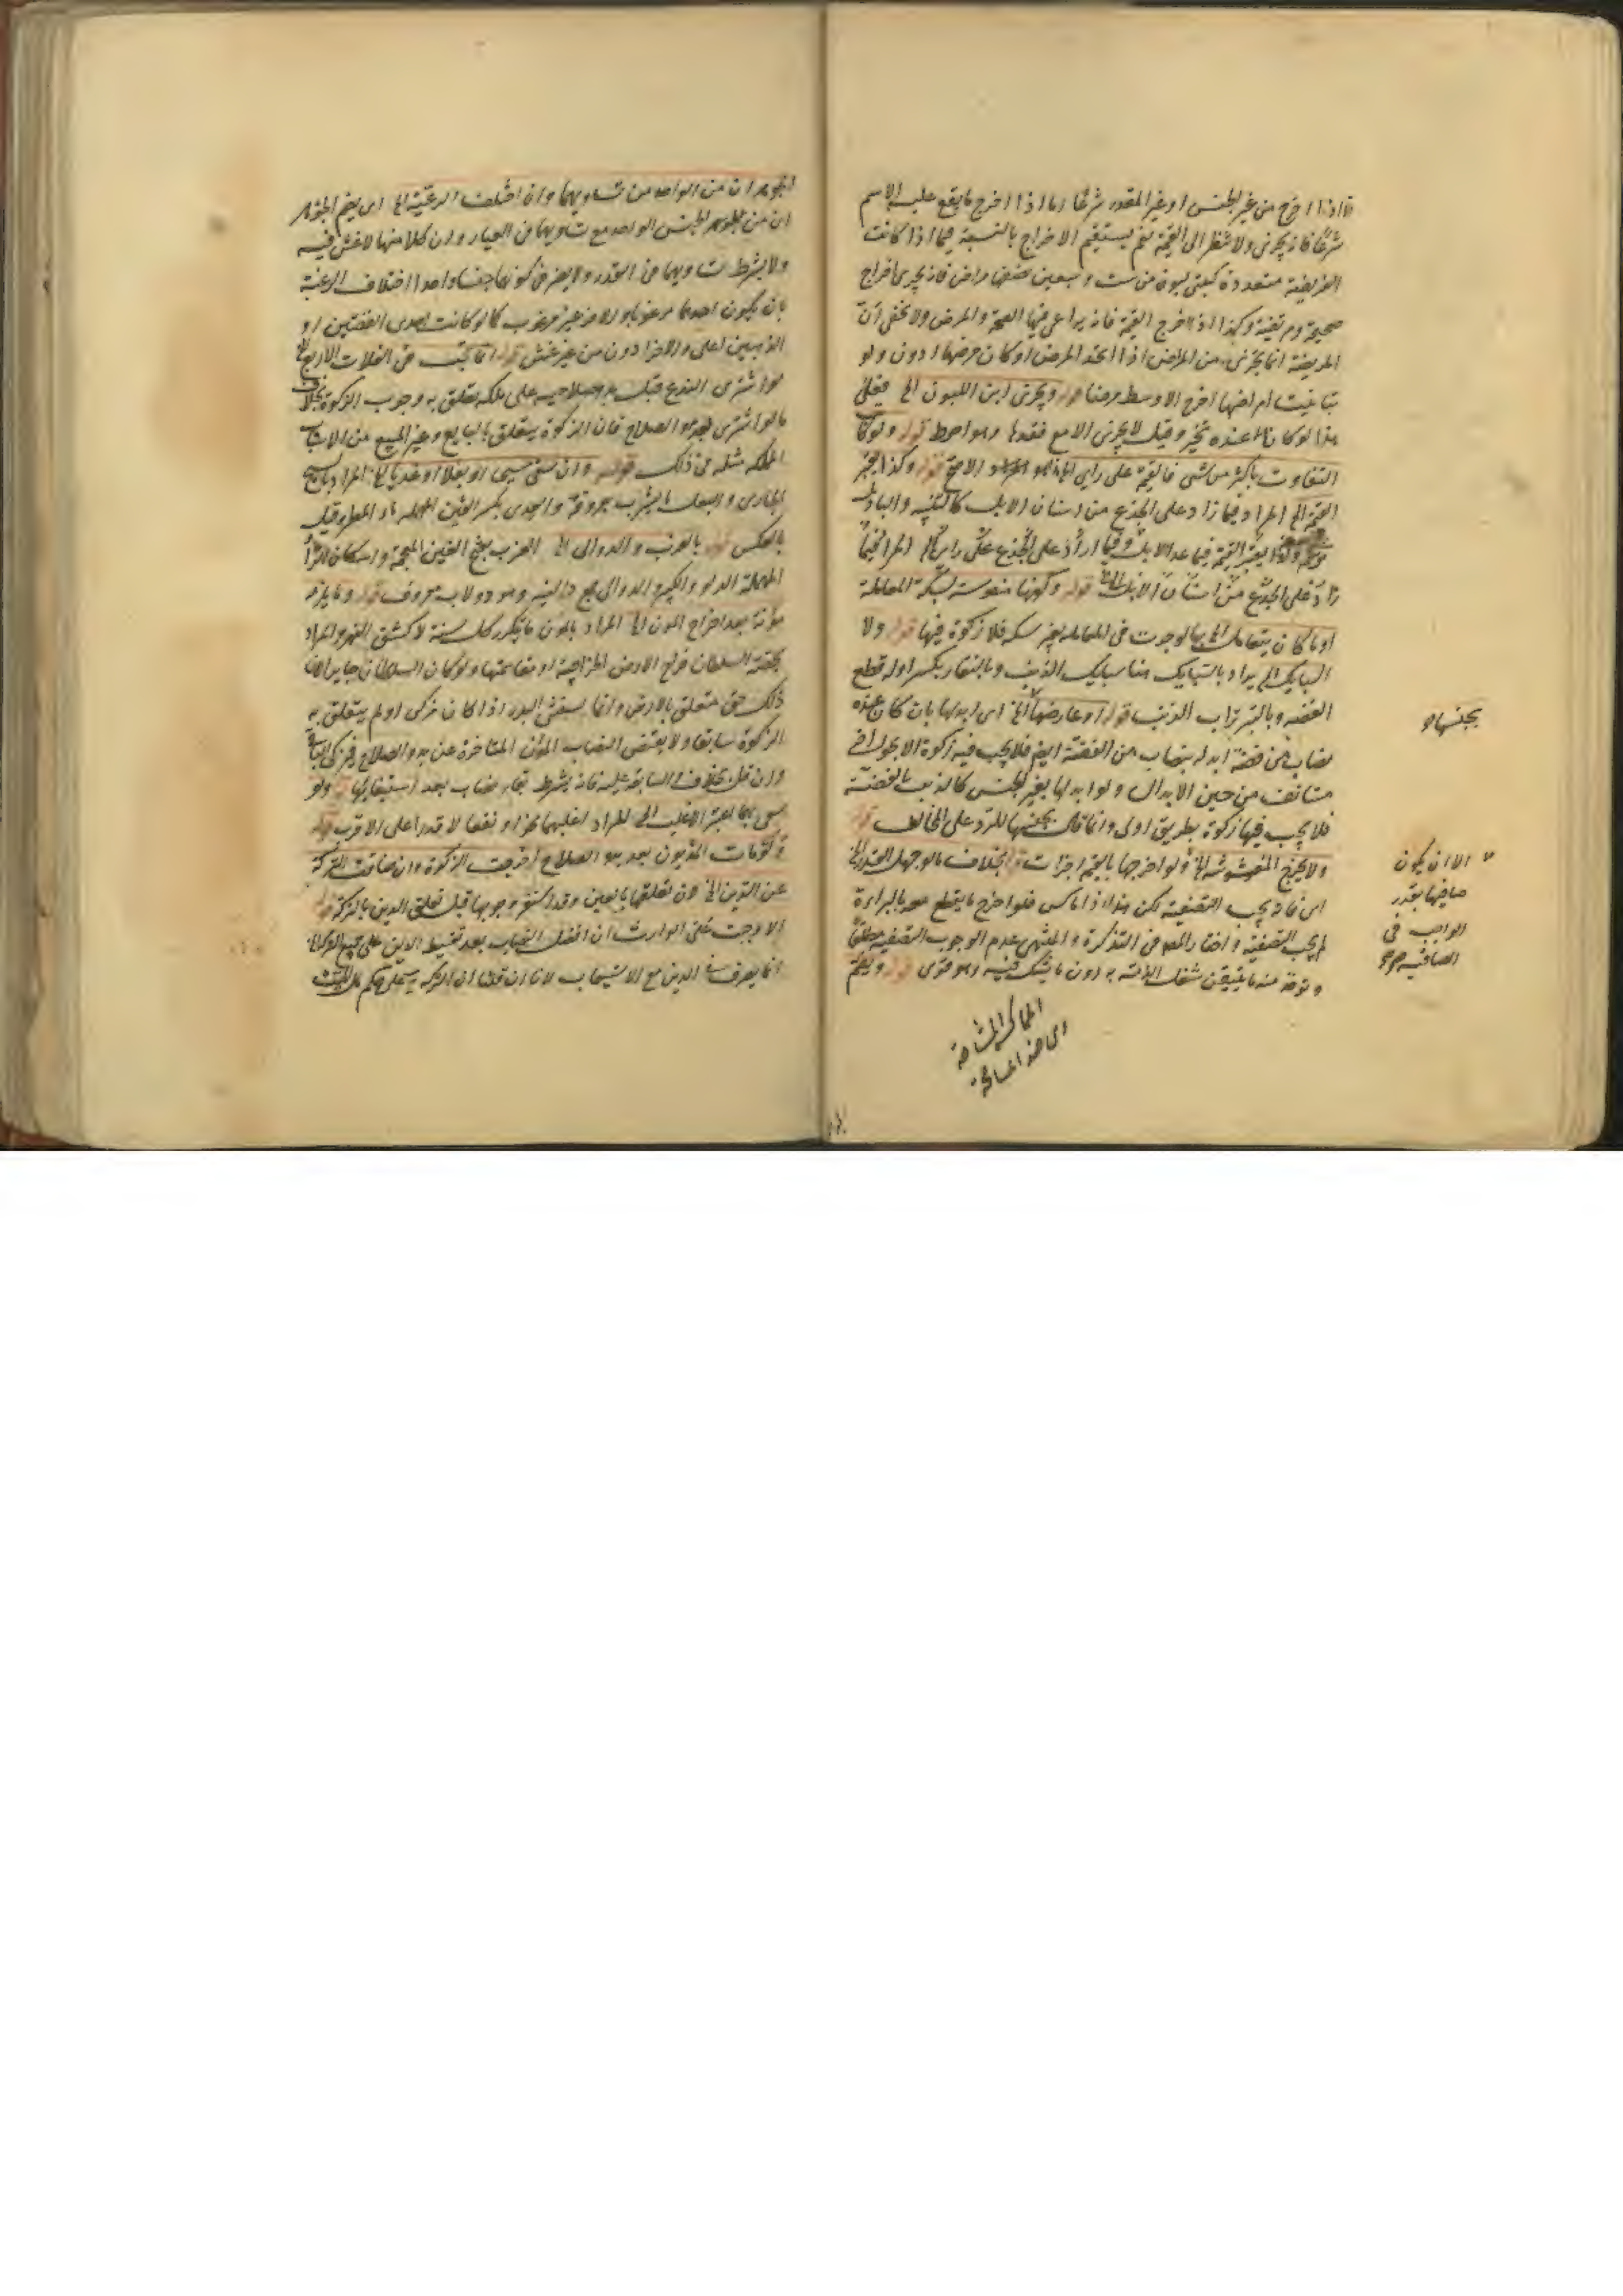 فاذا اخرج من غير الجنس او غير المقدر شرعا اما اذا اخرج ما يقع عليه الاسم
شرعا فانه يجزى ولا ينظر الى القيمة نعم يستقيم الاخراج بالنسبة فيما اذا كانت
الفريضة متعددة كبنتى لبون من ست وسبعين نصفها مراض فانه يجزى اخراج
صحيحة ومريضة وكذا اذا اخرج القيمة فانه يراعى فيها الصحة والمرض ولا يخفى ان
المريضة انما تجزى من المراض اذا اتحد المرض او كان مرضها ادون ولو
تباينت امراضها اخرج الاوسط مرضا قوله ويجزى ابن اللبون الخ فعلى
هذا لو كانا عنده تخير وقيل لا يجزى الا مع فقدها وهو احوط قوله ولو كان
التفاوت باكثر من سن فالقيمة على راى الخ هو الاصح قوله وكذا تجزى
القيمة الخ المراد فيما زاد على الجذع من اسنان الابل كالثنية والبازل
القيمة فيما عدا الابل وفيما زاد على الجذع على راى الخ المراد فيما
زاد على الجذع من اسنان الابل قوله وكونها منقوشة بسكة المعاملة
او ما كان يتعامل الخ فلو جرت فى المعاملة بغير سكة فلا زكوة فيها قوله ولا
السبايك الخ يراد بالسبايك هنا سبايك الذهب وبالنقار بكسر اوله قطع
الفضة وبالتبر تراب الذهب قوله او عارضها الخ اى ابدلها بان كان عنده
نصاب من فضة ابدله بنصاب من الفضة ايضا فلا يجب فيه زكوة الا بحول
مستانف من حين الابدال ولو ابدلها بغير الجنس كالذهب بالفضة
فلا يجب فيها زكوة بطريق اولى وانما قال بجنسها للرد على المخالف قوله
ولا يجزى المغشوشة الخ ولو اخرجها بالقيمة اجزات قوله بخلاف ما لو جهل القدر الخ
اى فانه يجب التصفية لكن هذا اذا ماكس فلو اخرج ما يقطع معه بالبراءة
لم يجب التصفية واختار المصنف فى التذكرة والمنتهى عدم الوجوب التصفية مطلقا
ويؤخذ منه ما يتيقن شغل الذمة به دون ما يشك فيه وهو قوى قوله ويضم
بجنسها
الا ان يكون
صافيها بقدر
الواجب فى
الصافيه
المماكسة المشاحة
الجوهران من الواحد مع تساويهما وان اختلفت الرغبة الخ اى يضم الجوهر
ان من الجوهر الجنس الواحد مع تساويهما فى العيار وان كلا منهما لا غش فيه
ولا يشترط تساويهما فى القدر ولا يضر فى كونهما جنسا واحدا اختلاف الرغبة
بان يكون احدهما مرغوبا والاخر غير مرغوب كما لو كانت احدى الفضتين او
الذهبين اعلى والاخرا دون من غير غش قوله انما تجب فى الغلات الاربع الخ
لو اشترى الزرع قبل بدو صلاحه على ملكه تعلق به وجوب الزكوة بخلاف
ما لو اشترى بعد بدو الصلاح فان الزكوة يتعلق بالبايع وغير البيع من الاسباب
المملكة مثله فى ذلك قوله وان سقى سيحا او بعلا او عذيا الخ المراد بالسيح
الجارى والبعل ما يشرب بعروقه والعذى بكسر العين المهملة ماء المطر وقيل
بالعكس قوله بالغرب والدوالى الخ الغرب بفتح الغين المعجمة واسكان الراء
المهملة الدلو الكبير والدوالى جمع دالية وهو دولاب معروف قوله وما يلزم
مؤنة بعد اخراج المؤن الخ المراد بالمؤن ما يتكرر كل سنة لا كشق النهر والمراد
بحصة السلطان خراج الارض الخراجية او مقاسمتها ولو كان السلطان جايرا لان
ذلك حق متعلق بالارض وانما يستثنى البذر اذا كان مزكى او لم يتعلق به
الزكوة سابقا ولا ينقص النصاب المؤن المتاخرة عن بدو الصلاح فيزكى الباقى
وان قل بخلاف السابقة عليه فانه يشترط بقاء نصاب بعد استيفائها قوله ولو
سقى بهما اعتبر الاغلب الخ المراد اغلبهما نموا ونفعا لا قدرا على الاقرب قوله
ولو مات المديون بعد بدو الصلاح اخرجت الزكوة وان ضاقت التركة
عن الدين الخ لان تعلقها بالعين وقد استقر وجوبها قبل تعلق الدين بالتركة قوله
الا وجبت على الوارث ان افضل النصاب بعد تقسيط الدين على جميع التركة الخ
انما يصرف فى الدين مع الاستيعاب لانا ان قلنا ان التركة على حكم مال الميت